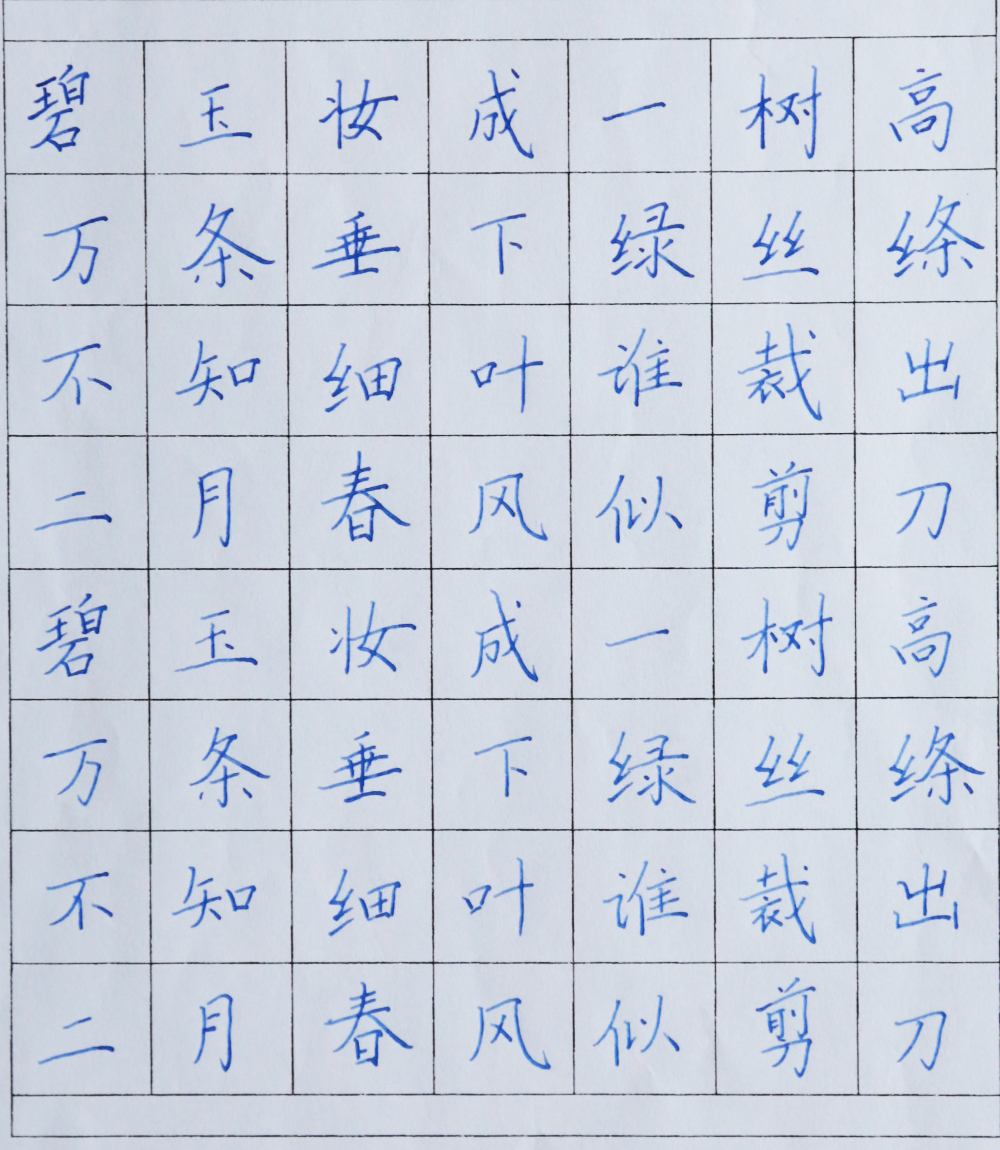 碧玉妆成一树高
万条垂下绿丝绦
不知细叶谁裁出
二月春风似剪刀
碧玉妆成一树高
万条垂下绿丝绦
不知细叶谁裁出
二月春风似剪刀